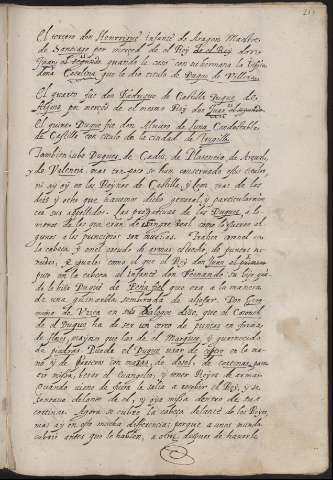 El tercero don Henrrique Infante de Aragon Maestre
de Santiago por merced de el Rey don
Juan el segundo, quando le caso con su hermana la Infanta
doña Catalina que le dio titulo de Duque de Villena.
El quarto fue don Fadrique de Castilla Duque de
Arjona por merced de el mismo Rey don Juan el segundo
El quinto Duque fue don Alvaro de Luna Condestable
de Castilla con titulo de la ciudad de Truxillo
Tambien hubo Duques de Cadiz, de Plasencia, de Arevalo,
y de Valencia, mas con pero se han conservado este titulo,
ni ay oy en los Reynos de Castilla, y Leon mas de los
diez y ocho que havemos dicho general, y particularmen
con sus appellidos. Las de los Duques, a lo
menos de los que eran de sangre real como lo fueron el
a los principios son muchas. Traer coronel en
la cabeça, y en el escudo de armas de puntas
iguales como el que el Rey don Juan el primero
puso en la cabeça al Infante don Fernando su hijo quan
do le hiço Duque de Peñafiel que era a la manera
de una guirnalda sembrada de aljofar. Don
de en su Dialogo diçe, que el Coronel
de el Duque ha de ser un cerco de puntas en forma
de flores, mayores que las de el Marques y guarnecido
de piedras. Puede el Duque usar de cetro en la ma
no y de con maças, de dosel, de cortinas para
oir missa, besar el Euangelio, y tener Reyes de armas.
quando viene de fuera le salia a recebir el Rey, y se
sentava delante de el, y oya missa dentro de sus
cortinas. Agora se cubre la cabeça delante de los Reyes,
mas ay en esto mucha diferencia: porque a unos manda
cubrir antes que le hablen, a otros despues de haverle